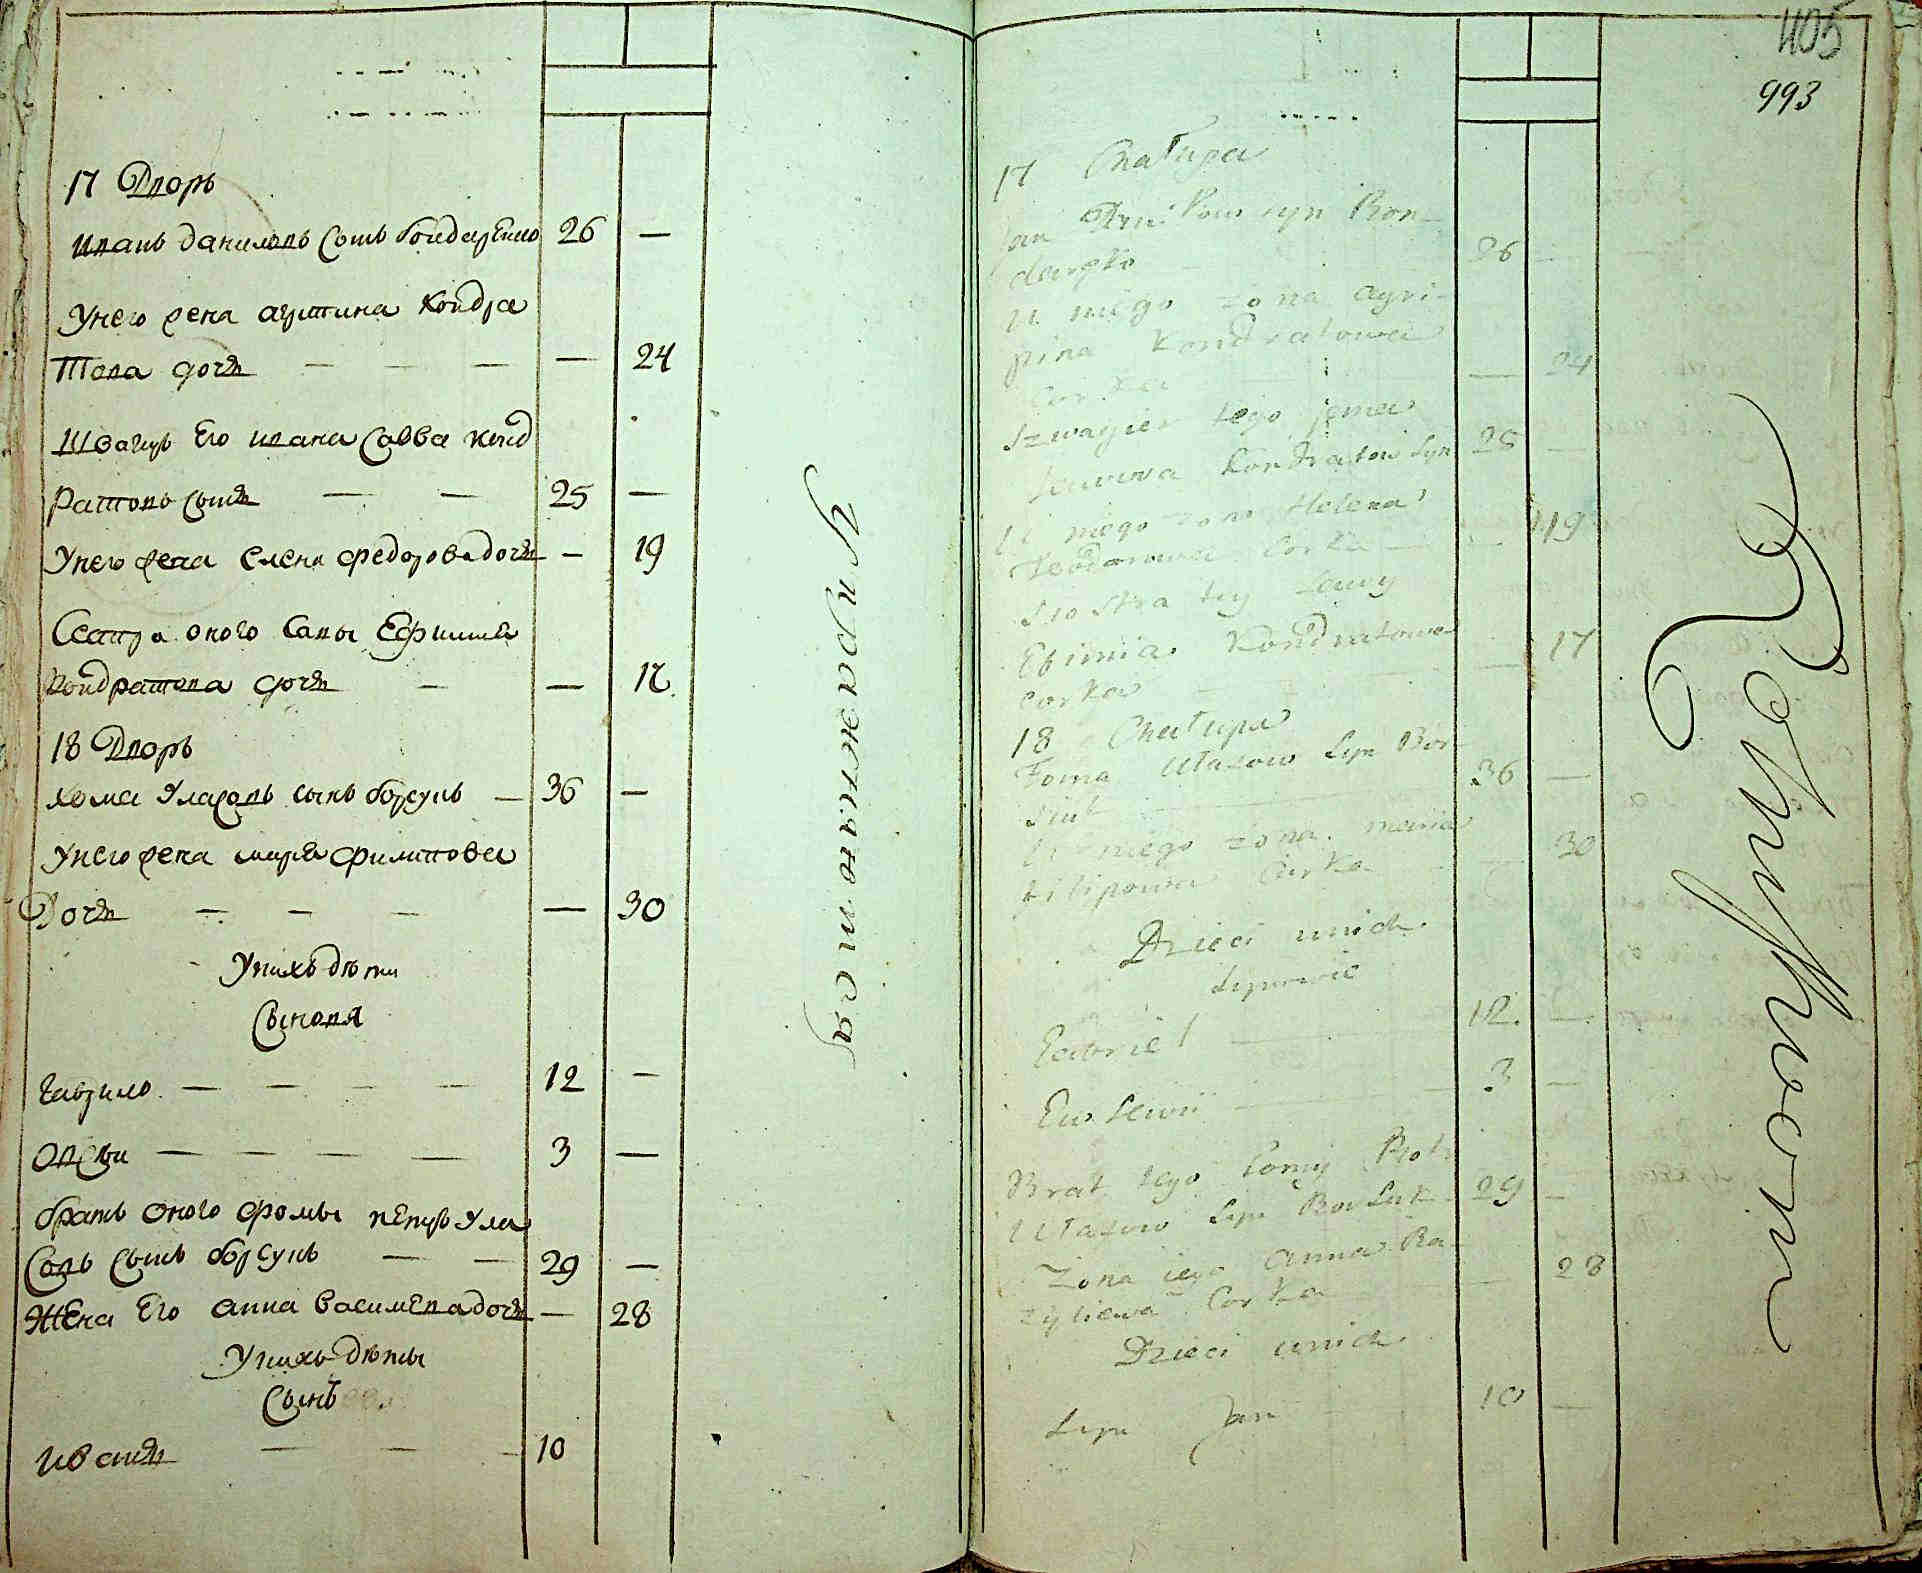 17 Дворъ
Иванъ даниловъ сынъ бондаренко 26 —
Унего жена агрипина Кондра
това дочь — — — — 24
Шваґиръ Его ивана Савва Конд
ратовъ сынъ — — 25 —
Унего жена Елена федорова дочь — 19
Сестра оного Савы Ефимия
Кондратова дочь — — 17.
18 Дворъ
хома Уласовъ сынъ борсукъ — 36 —
Унего жена марія филипова
Дочь — — — — 30
Унихъ дѣти
Сыновя
гаврило — — — — 12 —
Овсѣи — — — — 3 —
братъ оного фомы петръ Ула
совъ сынъ борсукъ — — 29 —
Жена Его анна василева дочь — 28
Унихъ дѣты
Сынъ
иванъ — — — 10
405
993
17 Chałupa
Jan Daniłow syn Bon-
daręko 26 —
U niego żona agri-
pina Kondratowa
Corka — 24
Szwagier tego jana
Sawwa Kondratow Syn 25 —
U niego żona Helena
Teodorowa Corka — 19
Siostra tey Sawy
Efimia Kondratowa
corka — 17
18 Chałupa
Foma Ułasow Syn Bor-
suk 36 —
U niego żona maria
Filipowa Corka — 30
Dzieci unich
Synowie
Gabriel 12. —
Ewsewii 3 —
Brat tego Fomy Piotr
Ułasow Syn Borsuk 29 —
Żona iego Anna Ba-
zyliewa Corka — 28
Dzieci unich
Syn Jan 10 —